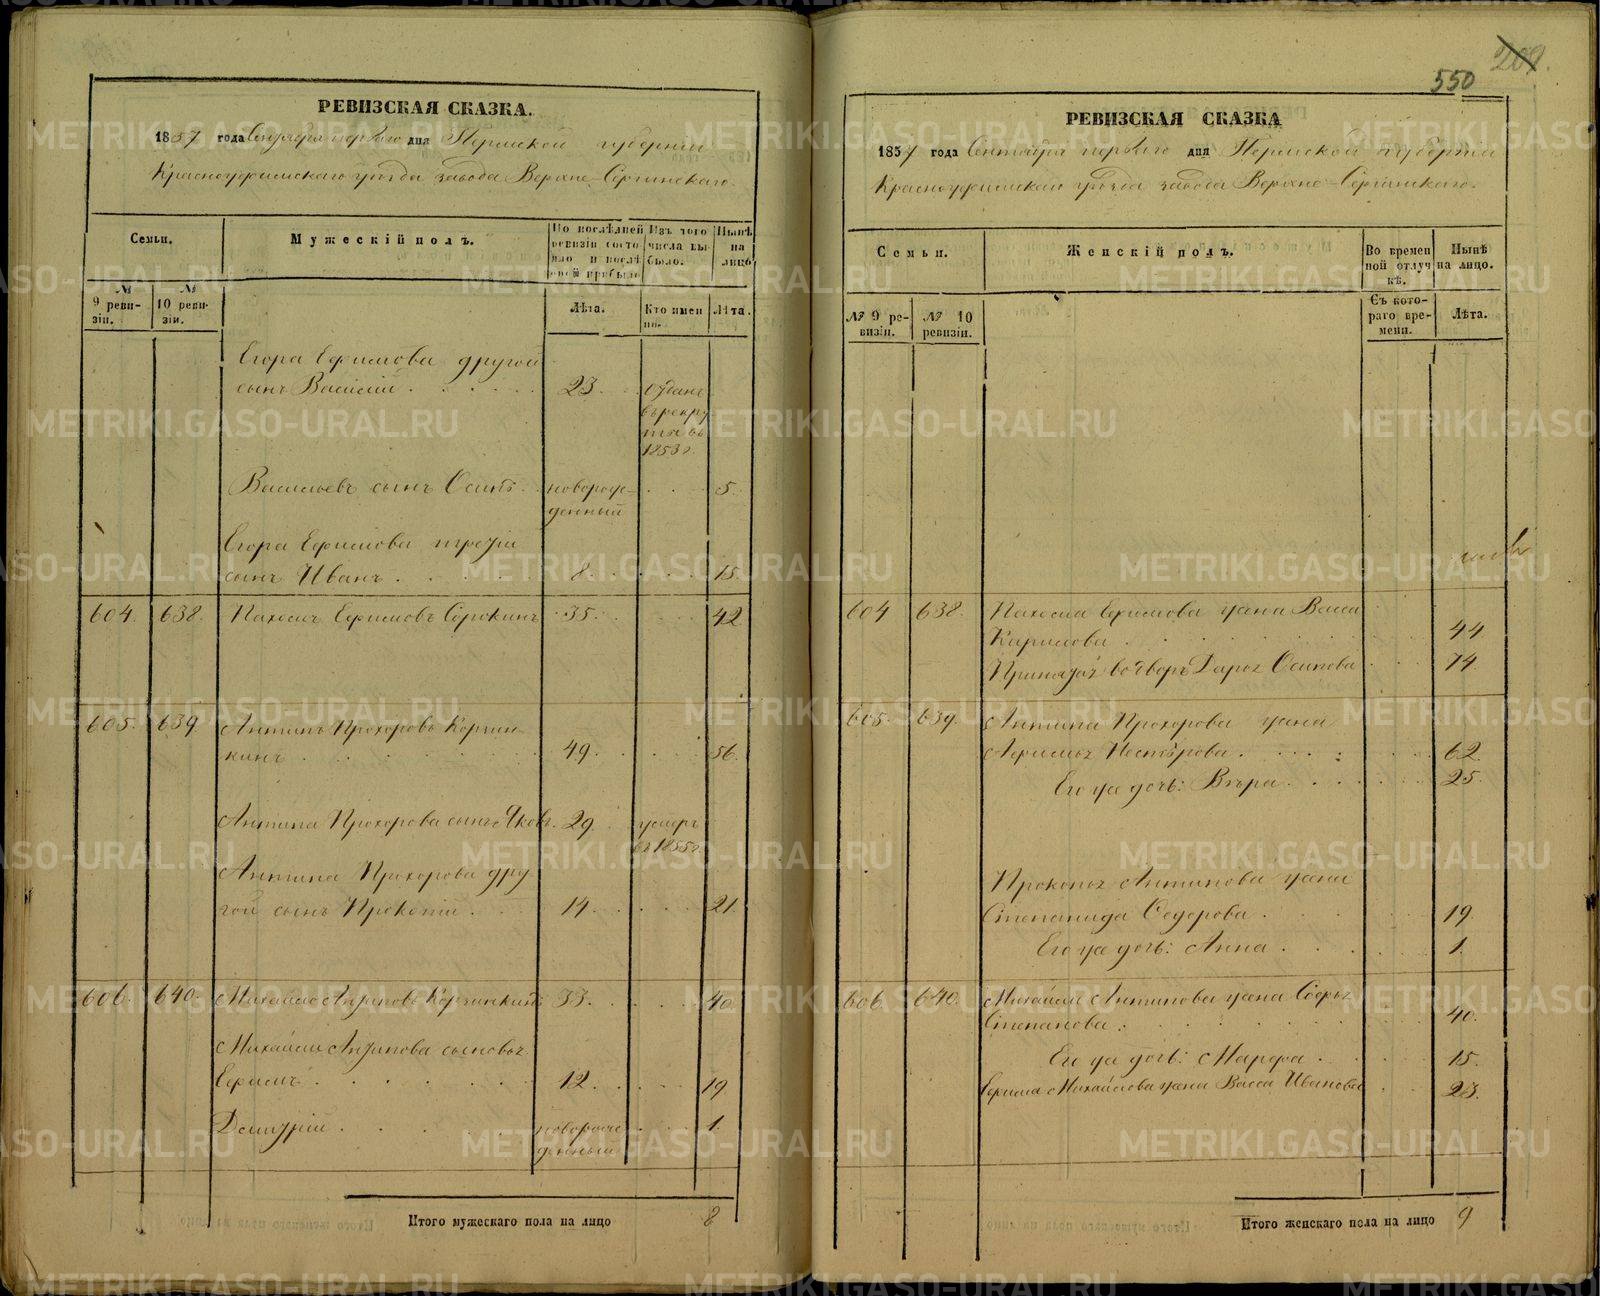 РЕВИЗСКАЯ СКАЗКА.
1857 года Сентября перваго дня Пермской губернии
Красноуфимскаго уѣзда завода Верхне-Сергинскаго.
Семьи.
Мужескій полъ.
По послѣдней ревизіи состояло и послѣ оной прибыло
Изъ того числа выбыло.
Нынѣ на лицо
№ 9 ревизіи.
№ 10 ревизіи.
Лѣта.
Кто именно.
Лѣта.
Егора Ефимова другой
сынъ Василій . . . . 23. отданъ
въ рекру
ты въ
1853 г.
Васильевъ сынъ Осипъ новорож- 5.
денный
Егора Ефимова третій
сынъ Иванъ . . . . 8. 15.
604. 638. Пахомъ Ефимовъ Сорокинъ 35. 42
605. 639. Антипъ Прохоровъ Корчин-
кинъ . . . . 49. 56.
Антипа Прохорова сынъ Яковъ. 29. умеръ
въ 1855 г.
Антипа Прохорова дру
гой сынъ Прокопій . . . 14. 21.
606. 640. Михайло Антиповъ Корчинкинъ 33. 40.
Михайлы Антипова сыновья
Ефимъ . . . . 12. 19
Дмитрій . . . . новорож 1.
денный
Итого мужескаго пола на лицо 8
209.
550
РЕВИЗСКАЯ СКАЗКА
1857 года Сентября перваго дня Пермской губерніи
Красноуфимскаго уѣзда завода Верхне-Сергинскаго.
Семьи.
Женскій полъ.
Во временной отлучкѣ.
Нынѣ на лицо.
№ 9 ревизіи.
№ 10 ревизіи.
Съ котораго времени.
Лѣта.
604 638. Пахома Ефимова жена Васса
Карпова . . . . 44
Дарья Осипова 74
605. 639. Антипа Прохорова жена
Афимья Нестерова . . . 62.
Его же дочь: Вѣра . . . 25.
Прокопья Антипова жена
Степанида Федорова . . . 19.
Его же дочь: Анна . . . 1.
606. 640. Михайлы Антипова жена Софья
Степанова . . . . 40.
Его же дочь: Марфа . . . 15.
Ефима Михайлова жена Васса Иванова 23.
Итого женскаго пола на лицо 9
METRIKI.GASO-URAL.RU